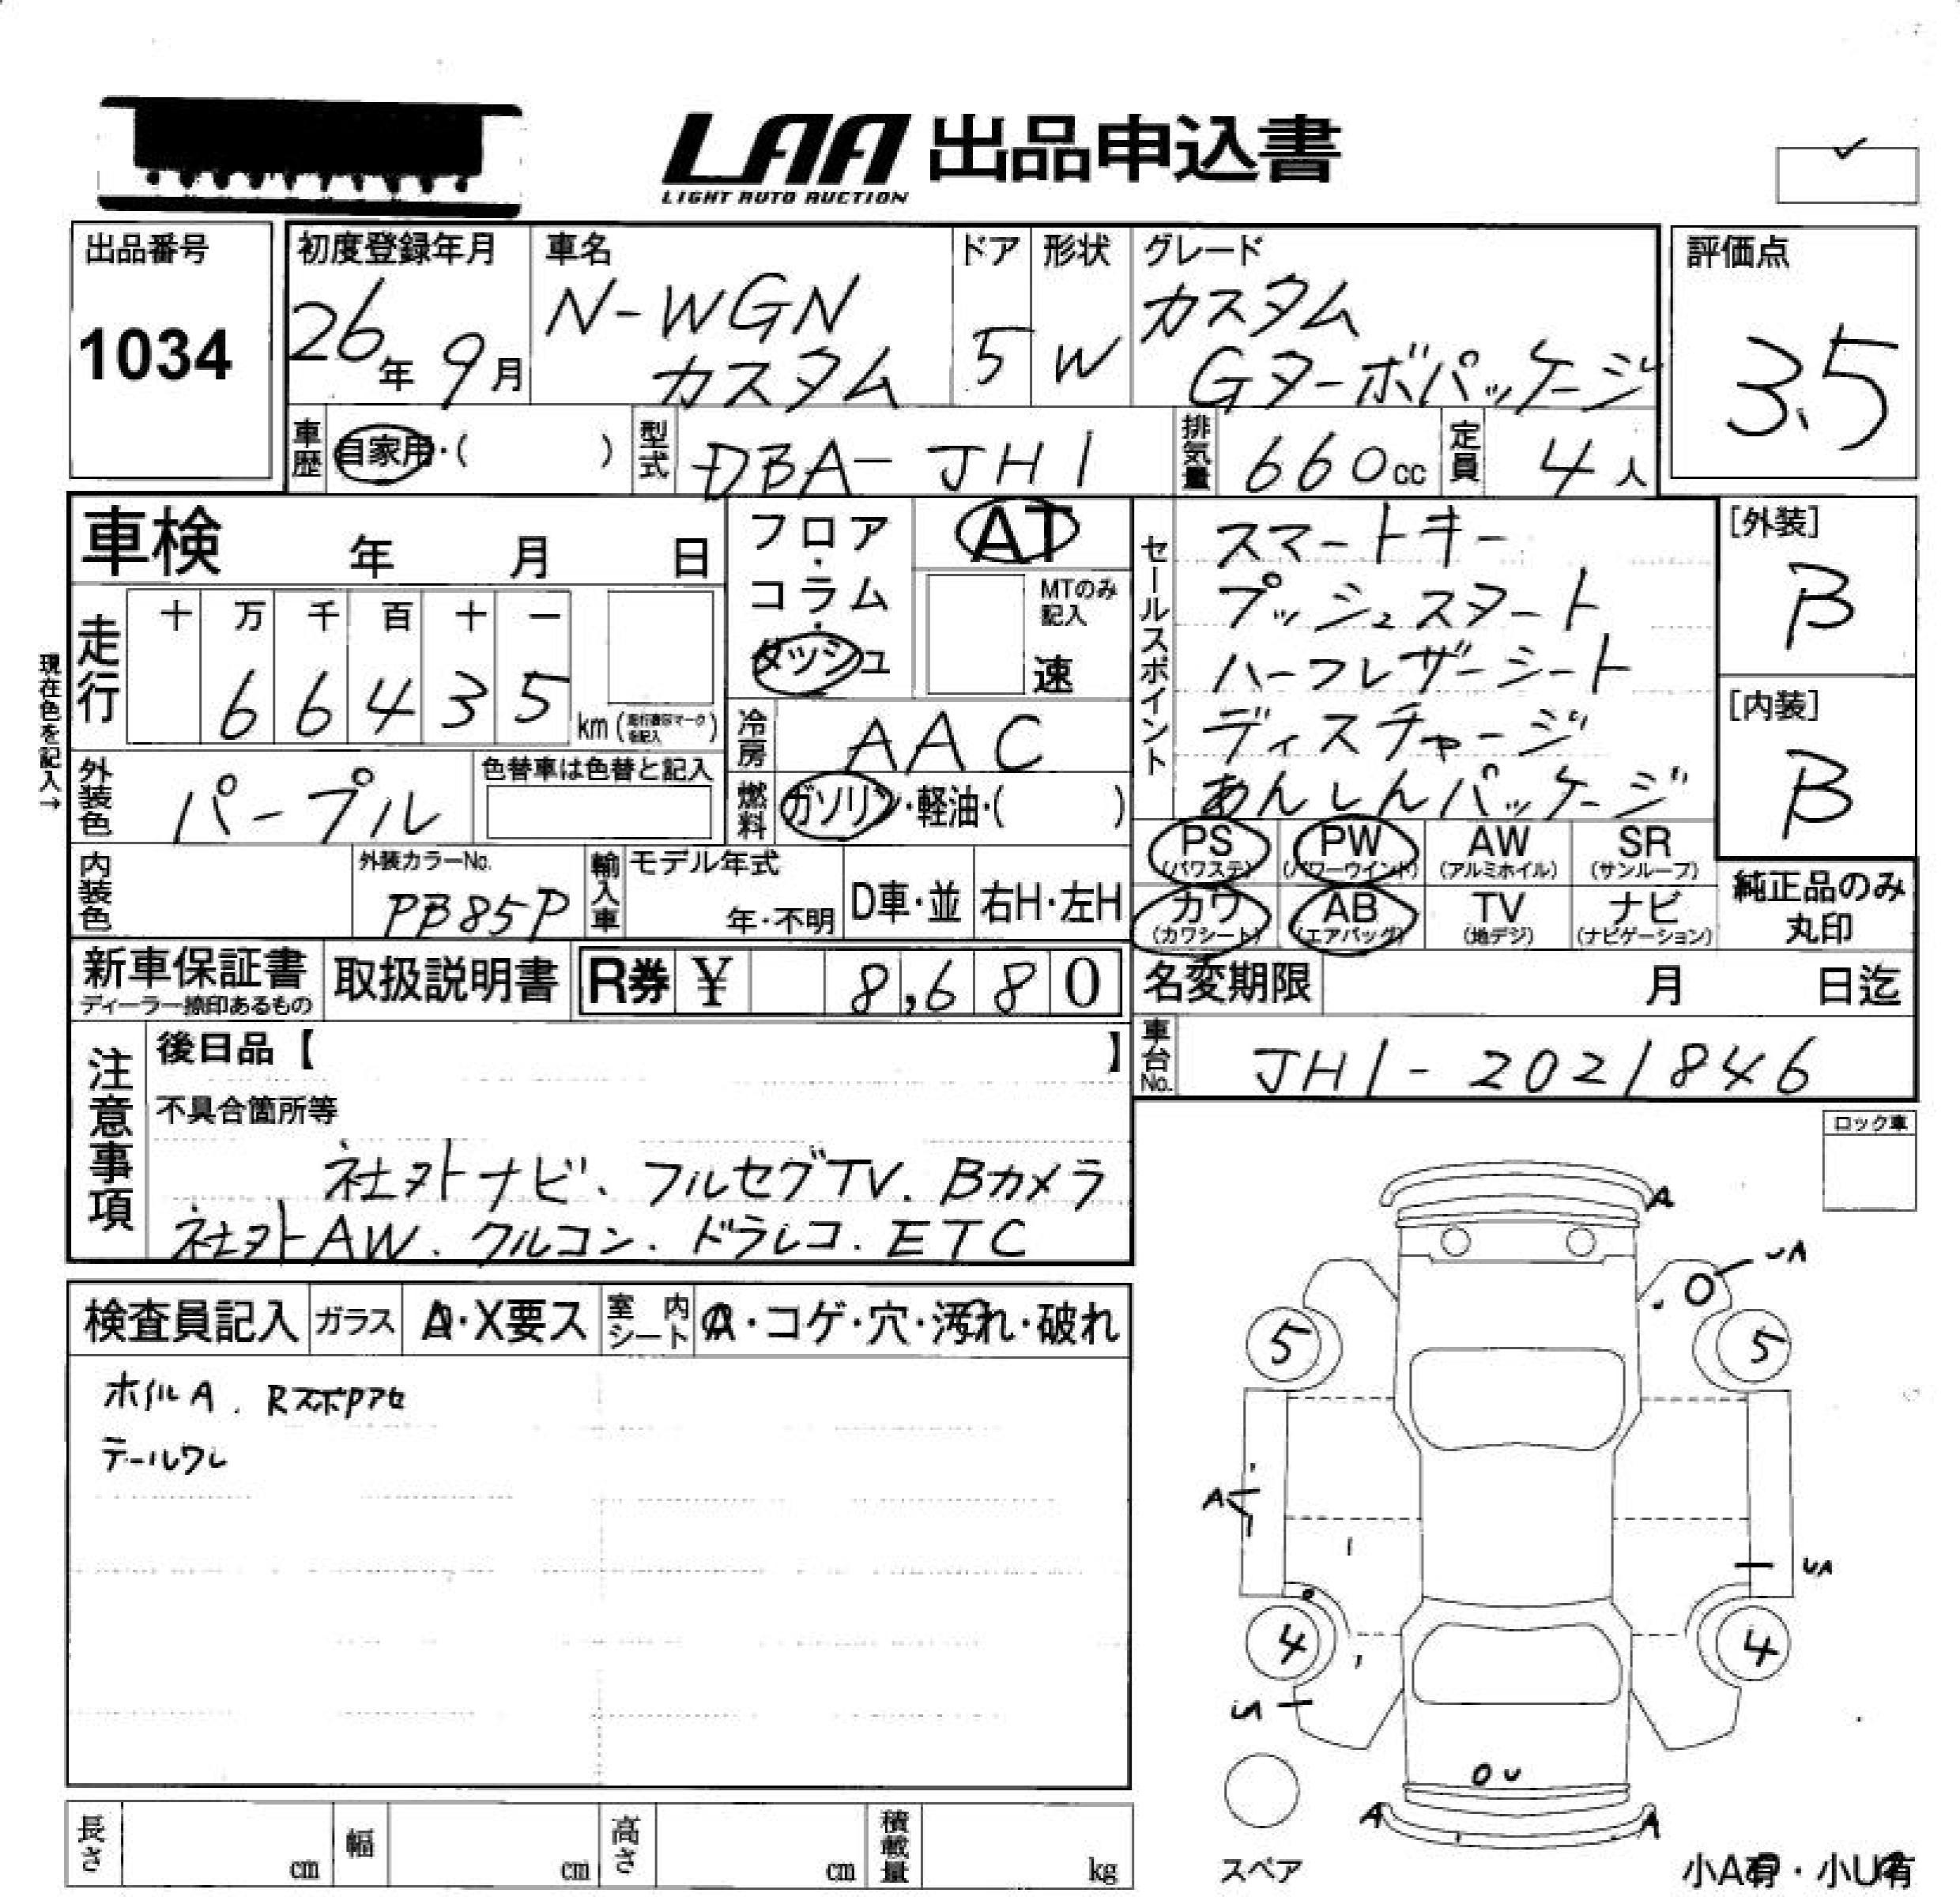 LAA 出品申込書
LIGHT AUTO AUCTION
出品番号
1034
初度登録年月
26年 9月
車名
N-WGN
カスタム
ドア
5
形状
W
グレード
カスタム
Gターボパッケージ
評価点
3.5
車歴 自家用・( )
型式 DBA-JH1
排気量 660cc
定員 4人
車検 年 月 日
フロア・
コラム・
ダッシュ
AT
MTのみ
記入
速
現在色を記入→
走行
十 万 千 百 十 一
6 6 4 3 5 km ( )
冷房 AAC
燃料 ガソリン・軽油・( )
外装色 パープル
色替車は色替と記入
内装色
外装カラーNo.
PB85P
輸入車
モデル年式
年・不明
D車・並
右H・左H
セールスポイント
スマートキー
プッシュスタート
ハーフレザーシート
ディスチャージ
あんしんパッケージ
[外装]
B
[内装]
B
PS (パワステ)
PW (パワーウインド)
AW (アルミホイル)
SR (サンルーフ)
カワ (カワシート)
AB (エアバッグ)
TV (地デジ)
ナビ (ナビゲーション)
純正品のみ
丸印
新車保証書
ディーラー捺印あるもの
取扱説明書
R券 ¥ 8,680
名変期限 月 日迄
車台No. JH1-2021846
注意事項
後日品【 】
不具合箇所等
社外ナビ、フルセグTV、Bカメラ
社外AW、クルコン、ドラレコ、ETC
ロック車
検査員記入
ガラス
A・X要ス
室内シート
A・コゲ・穴・汚れ・破れ
ホイルA、
テールワレ
A
UA
5
5
A
UA
4
4
U
A
A
スペア
小A有・小U有
長さ cm
幅 cm
高さ cm
積載量 kg